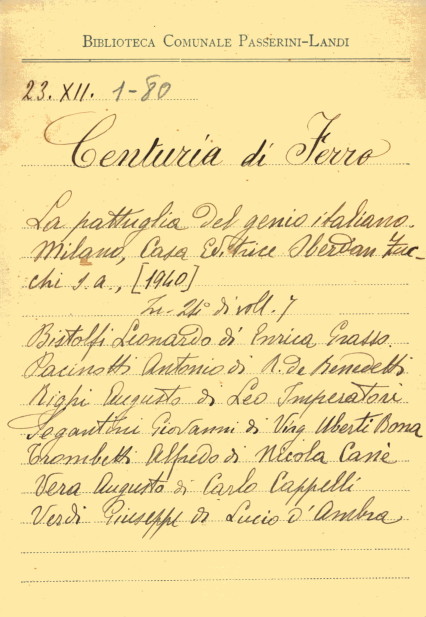 BIBLIOTECA COMUNALE PASSERINI-LANDI
23. XII. 1-80
Centuria di Ferro
La pattuglia del genio italiano.
Milano, Casa Editrice Oberdan Zuc-
chi s.a., [1940]
In-24° di voll. 7
Bistolfi Leonardo di Enrica Grasso
Pacinotti Antonio di R. de Benedetti
Righi Augusto di Leo Imperatori
Segantini Giovanni di Virg. Uberti Bona
Trombetti Alfredo di Nicola Canè
Vera Augusto di Carlo Cappelli
Verdi Giuseppe di Lucio d'Ambra